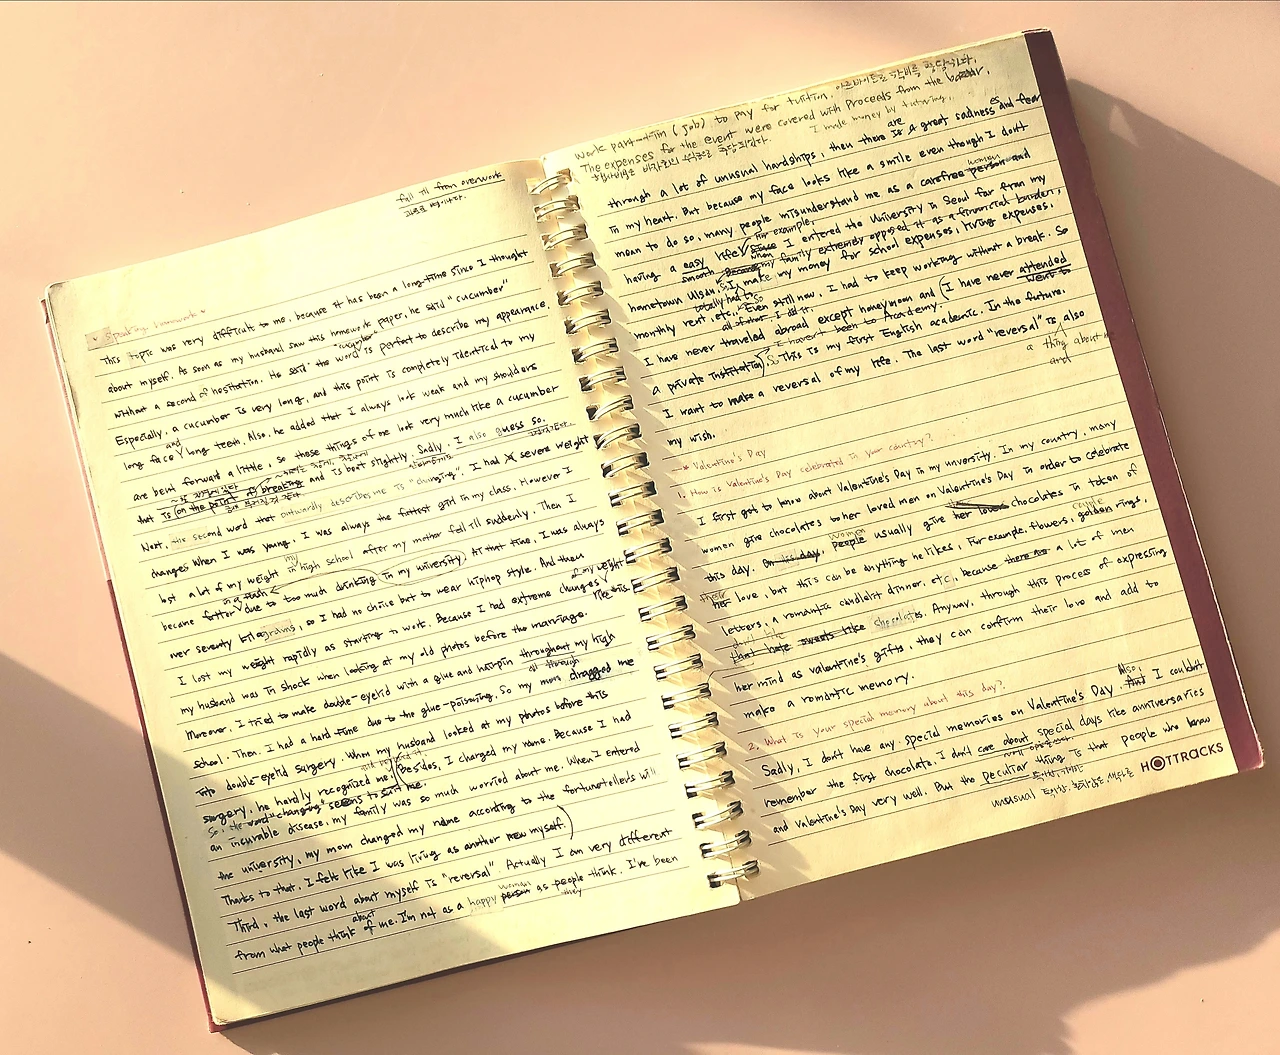 fall ill from overwork
과로로 병이나다.
Speaking homework
This topic was very difficult to me, because it has been a long-time since I thought
about myself. As soon as my husband saw this homework paper, he said "cucumber"
without a second of hesitation. He said the word "cucumber" is perfect to describe my appearance.
Especially, a cucumber is very long, and this point is completely identical to my
long face and long teeth. Also, he added that I always look weak and my shoulders
are bent forward a little, so these things of me look very much like a cucumber
that is (on the point of breaking and is bent slightly. Sadly, I also guess so.
Next, the second word that outwardly describes me is "changing". I had severe weight
changes when I was young. I was always the fattest girl in my class. However I
lost a lot of my weight in my high school after my mother fell ill suddenly. Then I
became fatter in a rush due to too much drinking in my university. At that time, I was always
over seventy kilograms, so I had no choice but to wear hiphop style. And then
I lost my weight rapidly as starting to work. Because I had extreme changes of my weight like this,
my husband was in shock when looking at my old photos before the marriage.
Moreover, I tried to make double-eyelid with a glue and hairpin throughout my high
all through
school. Then, I had a hard-time due to the glue-poisoning. So my mom dragged me
into double-eyelid surgery. When my husband looked at my photos before this
surgery, he hardly recognized me. (Besides, I changed my name. Because I had
So, the word "changing" seems to suit me.
an incurable disease, my family was so much worried about me. When I entered
the university, my mom changed my name according to the fortunetellers will
Thanks to that, I felt like I was living as another new myself.)
Third, the last word about myself is "reversal". Actually I am very different
from what people think about of me. I'm not as a happy woman person as people they think. I've been
work part-tim (job) to pay for tuition. 아르바이트로 학비를 감당하다.
The expenses for the event were covered with proceeds from the bazaar.
행사비용은 바자회의 수익금으로 충당되었다. I made money by tutoring.
through a lot of unusual hardships, then there are is a great sadness and fear
in my heart. But because my face looks like a smile even though I don't
mean to do so, many people misunderstand me as a carefree woman person and
having a easy life. For example, Since when I entered the University in Seoul far from my
smooth
hometown Ulsan, Because my family extremely opposed it as a financial burden,
So I totally had to make my money for school expenses, living expenses,
monthly rent, etc., Even still now, I had to keep working without a break. So
all of them, I did it.
I have never traveled abroad except honeymoon and (I have never attended went to
I haven't been to Academy.
a private institution) So This is my first English academic. In the future,
I want to make a reversal of my life. The last word "reversal" is also
a thing about
and
my wish.
* Valentine's Day
1. How is Valentine's Day celebrated in your country?
I first got to know about Valentine's Day in my university. In my country, many
women give chocolates to her loved men on Valentine's Day in order to celebrate
this day. On this day, Women people usually give her loves chocolates in token of
their her love, but this can be anything he likes, For example, flowers, couple golden rings,
letters, a romantic candlelit dinner, etc, because there are a lot of men
don't like
that hate sweets like chocolates. Anyway, through this process of expressing
her mind as valentine's gifts, they can confirm their love and add to
make a romantic memory.
2. What is your special memory about this day?
Sadly, I don't have any special memories on Valentine's Day. Also, And I couldn't
remember the first chocolate. I don't care about special days like anniversaries
and Valentine's Day very well. But the peculiar thing is that people who know
HOTTRACKS